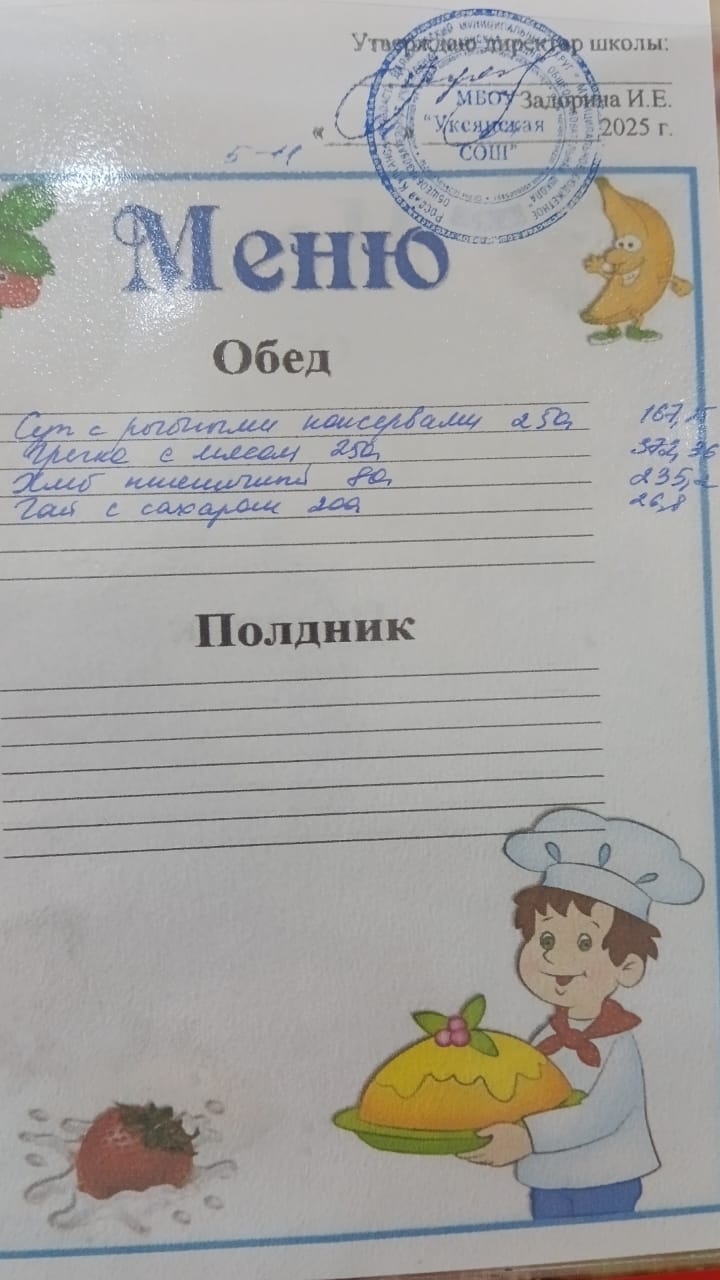 Утверждаю директор школы:
МБОУ Задорина И.Е.
« » "Уксянская 2025 г.
СОШ"
5-11
Меню
Обед
Суп с рыбными консервами 250 167,15
Гречка с мясом 250 372,36
Хлеб пшеничный 80 235,2
Чай с сахаром 200 26,8
Полдник